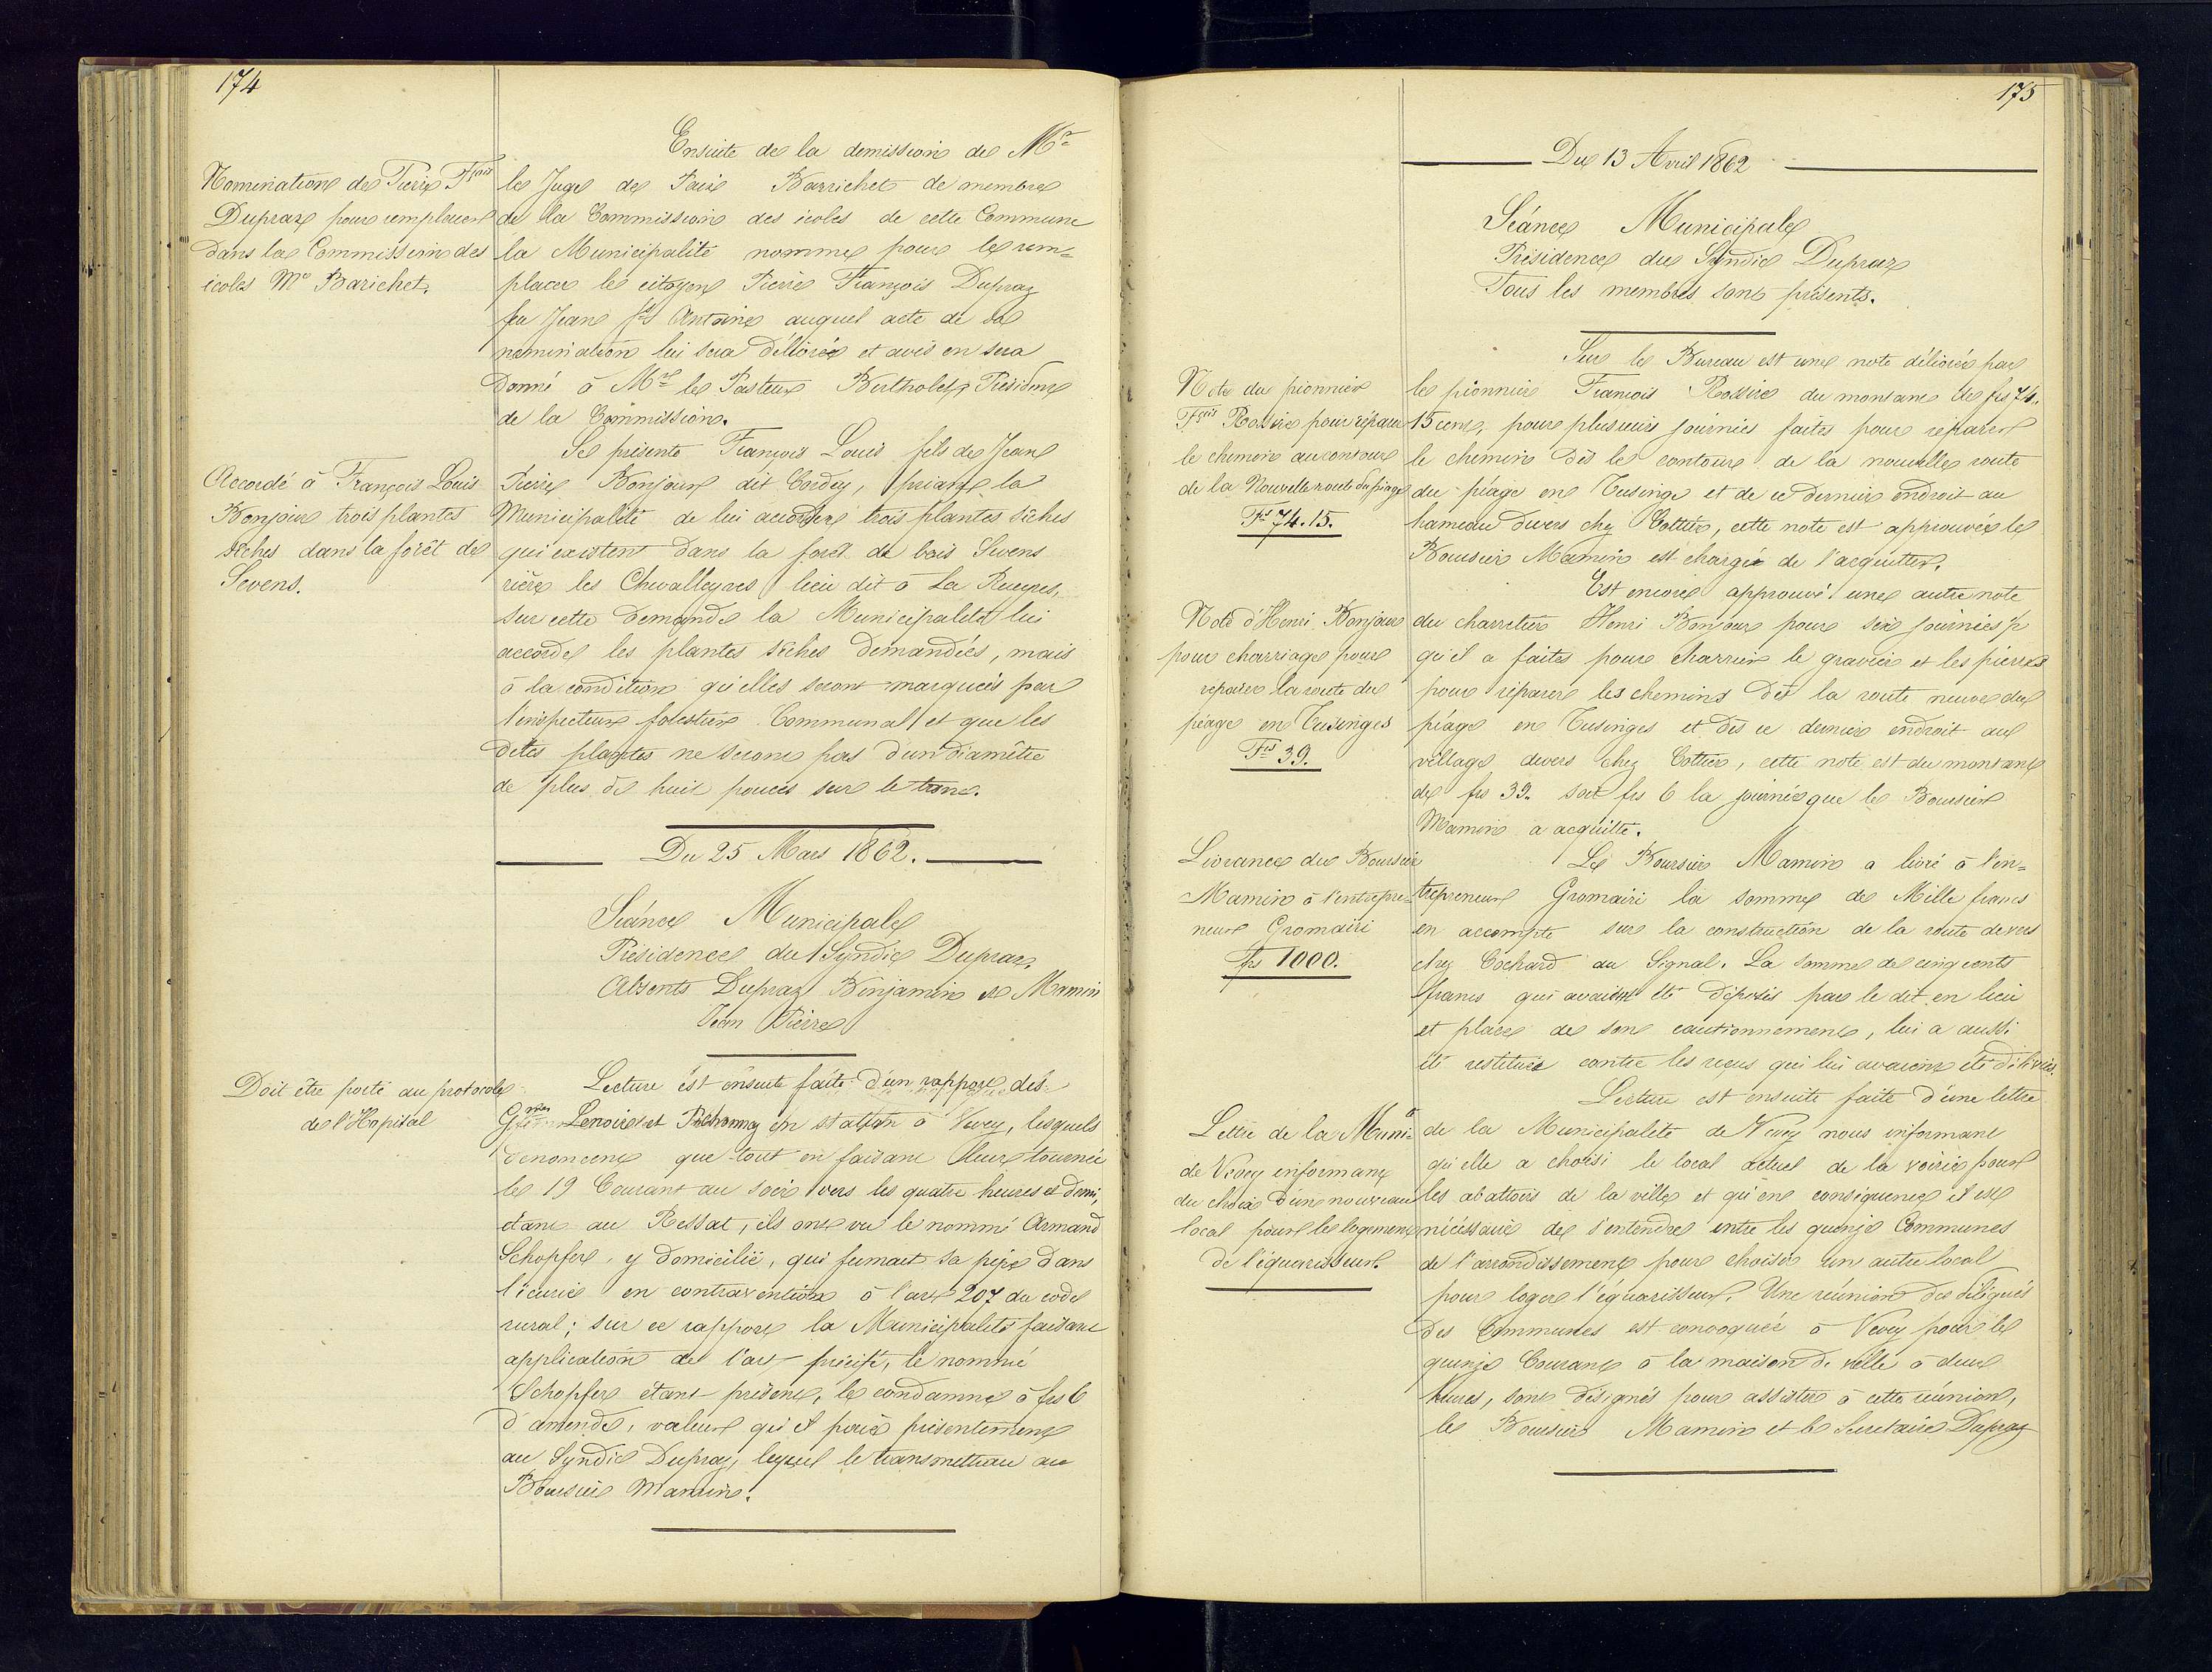 174
Ensuite de la demission de Mr
Nomination de Pierre Fçois
Dupraz pour remplacer
dans la Commission des
écoles Mr Barichet.
le Juge de Paix Barrichet de membre
de la Commission des écoles de cette Commune
la Municipalité nomme pour le rem=
placer le citoyen Pierre François Dupraz
feu Jean fs Antoine auquel acte de sa
nomination lui sera délivrée et avis en sera
donné à Mr le Pasteur Bertholet, Président
de la Commission.
Accordé à François Louis
Bonjour trois plantes
sèches dans la forêt de
Sevens.
Se présente François Louis fils de Jean
Pierre Bonjour dit Cordey, priant la
Municipalité de lui accorder trois plantes sèches
qui existent dans la forêt de bois Sevens
rière les Chevalleyres lieu dit à La Rueyres,
sur cette demande la Municipalité lui
accorde les plantes sèches demandées, mais
à la condition qu'elles seront marquées par
l'inspecteur forestier Communal et que les
dites plantes ne seront pas d'un diamêtre
de plus de huit pouces sur le tronc.
Du 25 Mars 1862.
Séance Municipale
Présidence du Syndic Dupraz.
Absents Dupraz Benjamin et Mamin
Jean Pierre
Doit être porté au protocole
de l'Hopital
Lecture est ensuite faite d'un rapport des
Gmes Lenoir et en station à Vevey, lesquels
dénoncent que tout en faisant leur tournée
le 19 Courant au soir vers les quatre heures et demi,
étant au Ressat, ils ont vu le nommé Armand
Schopfer y domicilié, qui fumait sa pipe dans
l'écurie en contravention à l'art 207 du code
rural; sur ce rapport la Municipalité faisant
application de l'art précité, le nommé
Schopfer étant présent, le condamne à frs 6
d'amende, valeur qu'il paie présentement
au Syndic Dupraz, lequel le transmettrau au
Boursier Mamin.
175
Du 13 Avril 1862
Séance Municipale
Présidence du Syndic Dupraz
Tous les membres sont présents.
Note du pionnier
Fçois Rossier pour réparer
le chemin au contour
de la Nouvelle route du péage
Fs 74.15.
Sur le Bureau est une note délivrée par
le pionnier François Rossier du montant de frs 74.
15 cent, pour plusieurs journées faites pour réparer
le chemin dès le contour de la nouvelle route
du péage en Tusinge et de ce dernier endroit au
hameau devers chez Cottier, cette note est approuvée le
Boursier Mamin est chargé de l'acquitter.
Note d'Henri Bonjour
pour charriage pour
réparer la route du
péage en Tusinges
Frs 39.
Est encore approuvé une autre note
du charretier Henri Bonjour pour six journées ½
qu'il a faites pour charrier le gravier et les pierres
pour réparer les chemins dès la route neuve du
péage en Tusinges et dès ce dernier endroit au
village devers chez Cottier, cette note est du montant
de frs 39. soit frs 6 la journée que le Boursier
Mamin a acquitté.
Livrance du Boursier
Mamin à l'entrepre-
neur Gromairi
frs 1000.
Le Boursier Mamin a livré à l'en=
trepreneur Gromairi la somme de Mille francs
en accompte sur la construction de la route devers
chez Cochard au Signal. La somme de cinq cents
francs qui avaient été déposés par le dit en lieu
et place de son cautionnement, lui a aussi
été restituée contre les reçus qui lui avaient été délivrés.
Lettre de la Munité
de Vevey informant
du choix d'un nouveau
local pour le logement
de l'équarisseur.
Lecture est ensuite faite d'une lettre
de la Municipalité de Vevey nous informant
qu'elle a choisi le local actuel de la voirie pour
les abattoirs de la ville et qu'en conséquence il est
nécéssaire de s'entendre entre les quinze Communes
de l'arrondissement pour choisir un autre local
pour loger l'équarisseur. Une réunion de délégués
des Communes est convoquée à Vevey pour le
quinze Courant à la maison de ville à deux
heures, sont désignés pour assister à cette réunion,
le Boursier Mamin et le Secrétaire Dupraz